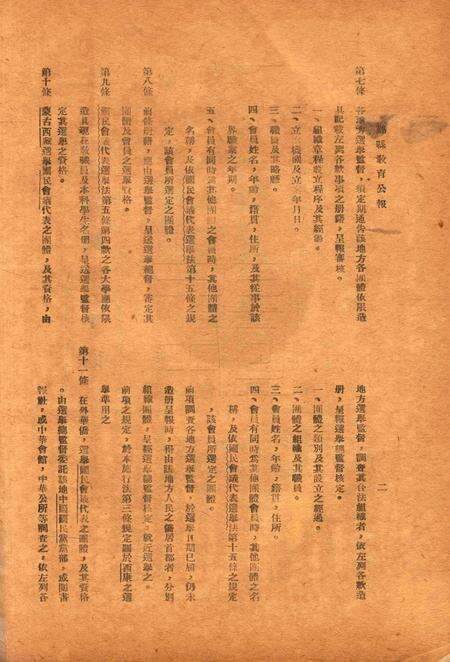 縣教育公報
二
第七條　各地方選舉監督，須定期通告該地方各團體依限造
具記載左列各款事項之冊籍，呈報審核。
一、組織章程設立程序及其經過。
二、立案機關及立案年月日。
三、職員及其略歷。
四、會員姓名，年齡，籍貫，住所，及其從事於該
界職業之年期。
五、會員有同時為其他團體之會員時，其他團體之
名稱，及依國民會議代表選舉法第十五條之規
定，該會員所選定之團體。
第八條　前條冊籍，應由選舉監督，呈送選舉總監督，審定其
團體及會員之選舉資格。
第九條　國民會議代表選舉法第五條第四款之各大學應依限
造具現在教職員及本科學生之冊，呈送選舉監督核
定其選舉之資格。
第十條　蒙古西藏選舉國民會議代表之團體，及其資格，由
地方選舉監督，調查其合法組織者，依左列各款造
冊，呈報選舉總監督核定。
一、團體之類別及其設立之經過。
二、團體之組織及其職員。
三、會員姓名，年齡，籍貫，住所。
四、會員有同時為其他團體會員時，其他團體之名
稱，及依國民會議代表選舉法第十五條之規定
，該會員所選定之團體。
前項調查各地方選舉監督，於選舉日期已屆，仍未
造冊呈報時，得由該地方人民之僑居首都者，分別
組織團體，呈經選舉總監督核定，就近選舉之。
前項之規定，於本施行法第三條規定關於西康之選
舉準用之
第十一條　在外華僑，選舉國民會議代表之團體，及其資格
，由選舉總監督委託該地中國國民黨黨部，或領事
館，或中華會館，中華公所等調查之，依左列各